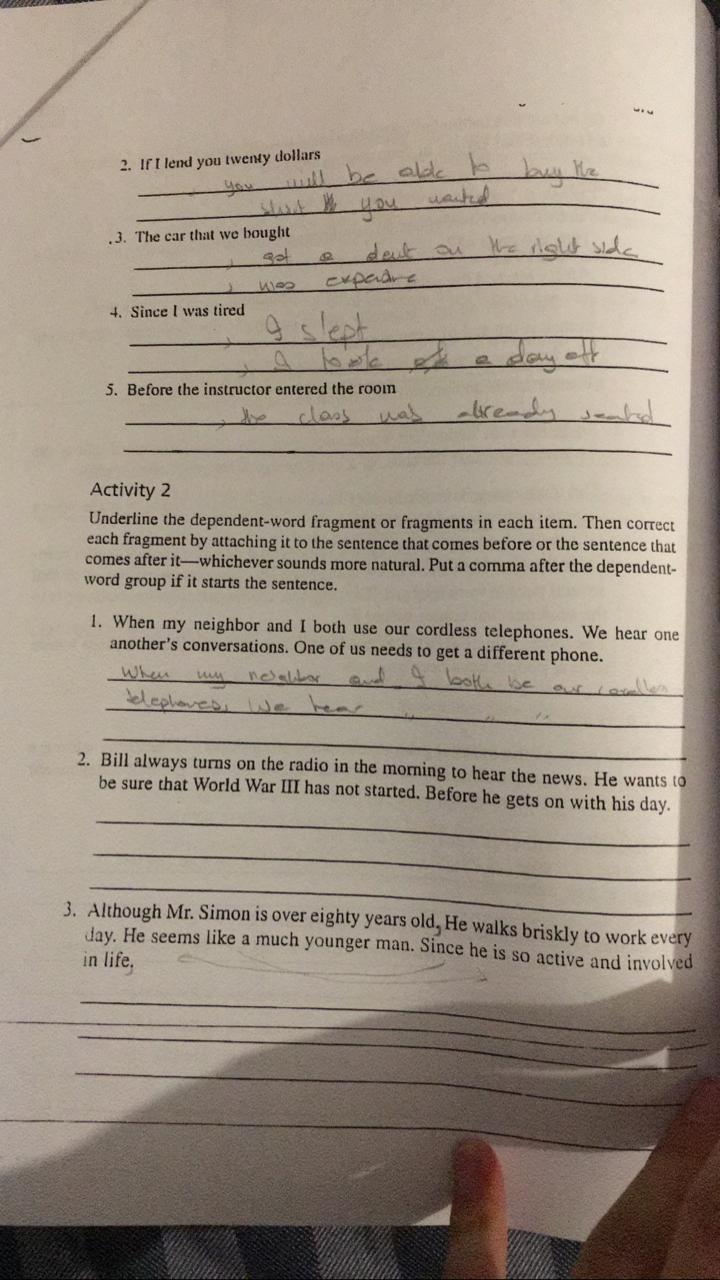 2. If I lend you twenty dollars
, you will be able to buy the
you wanted
.3. The car that we bought
, got a dent on the right side
, was
4. Since I was tired
, I slept
, I took a day off
5. Before the instructor entered the room
, the class was already seated
Activity 2
Underline the dependent-word fragment or fragments in each item. Then correct
each fragment by attaching it to the sentence that comes before or the sentence that
comes after it—whichever sounds more natural. Put a comma after the dependent-
word group if it starts the sentence.
1. When my neighbor and I both use our cordless telephones. We hear one
another's conversations. One of us needs to get a different phone.
When my neighbor and I both our
telephones, We hear " " "
2. Bill always turns on the radio in the morning to hear the news. He wants to
be sure that World War III has not started. Before he gets on with his day.
3. Although Mr. Simon is over eighty years old, He walks briskly to work every
day. He seems like a much younger man. Since he is so active and involved
in life,